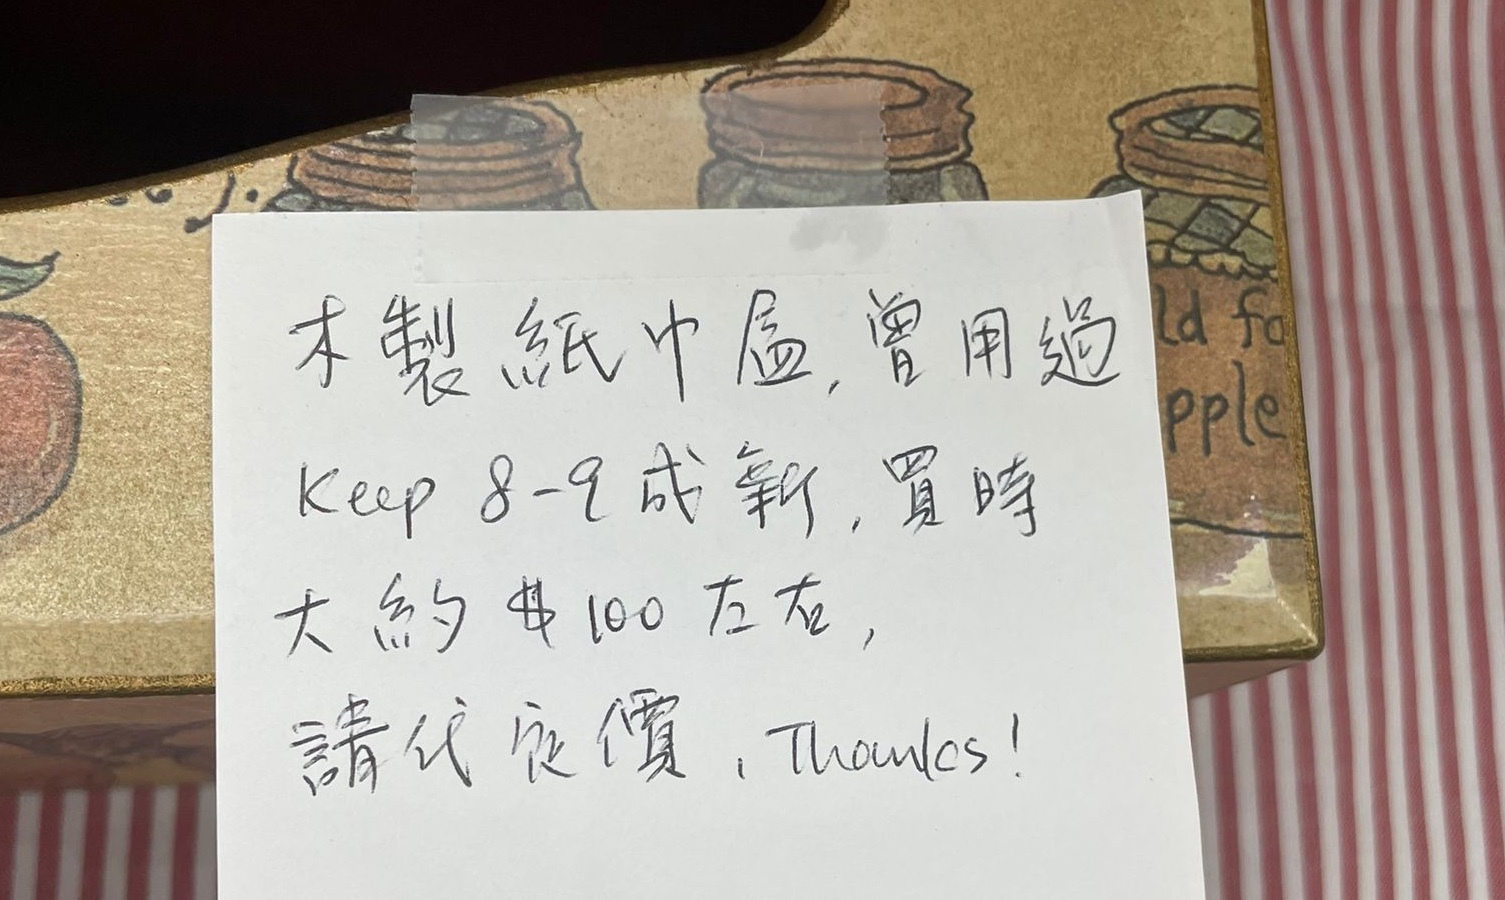 木製紙巾盒，曾用過
Keep 8-9成新，買時
大約$100左右，
請代定價，Thanks!
ld fo
pple